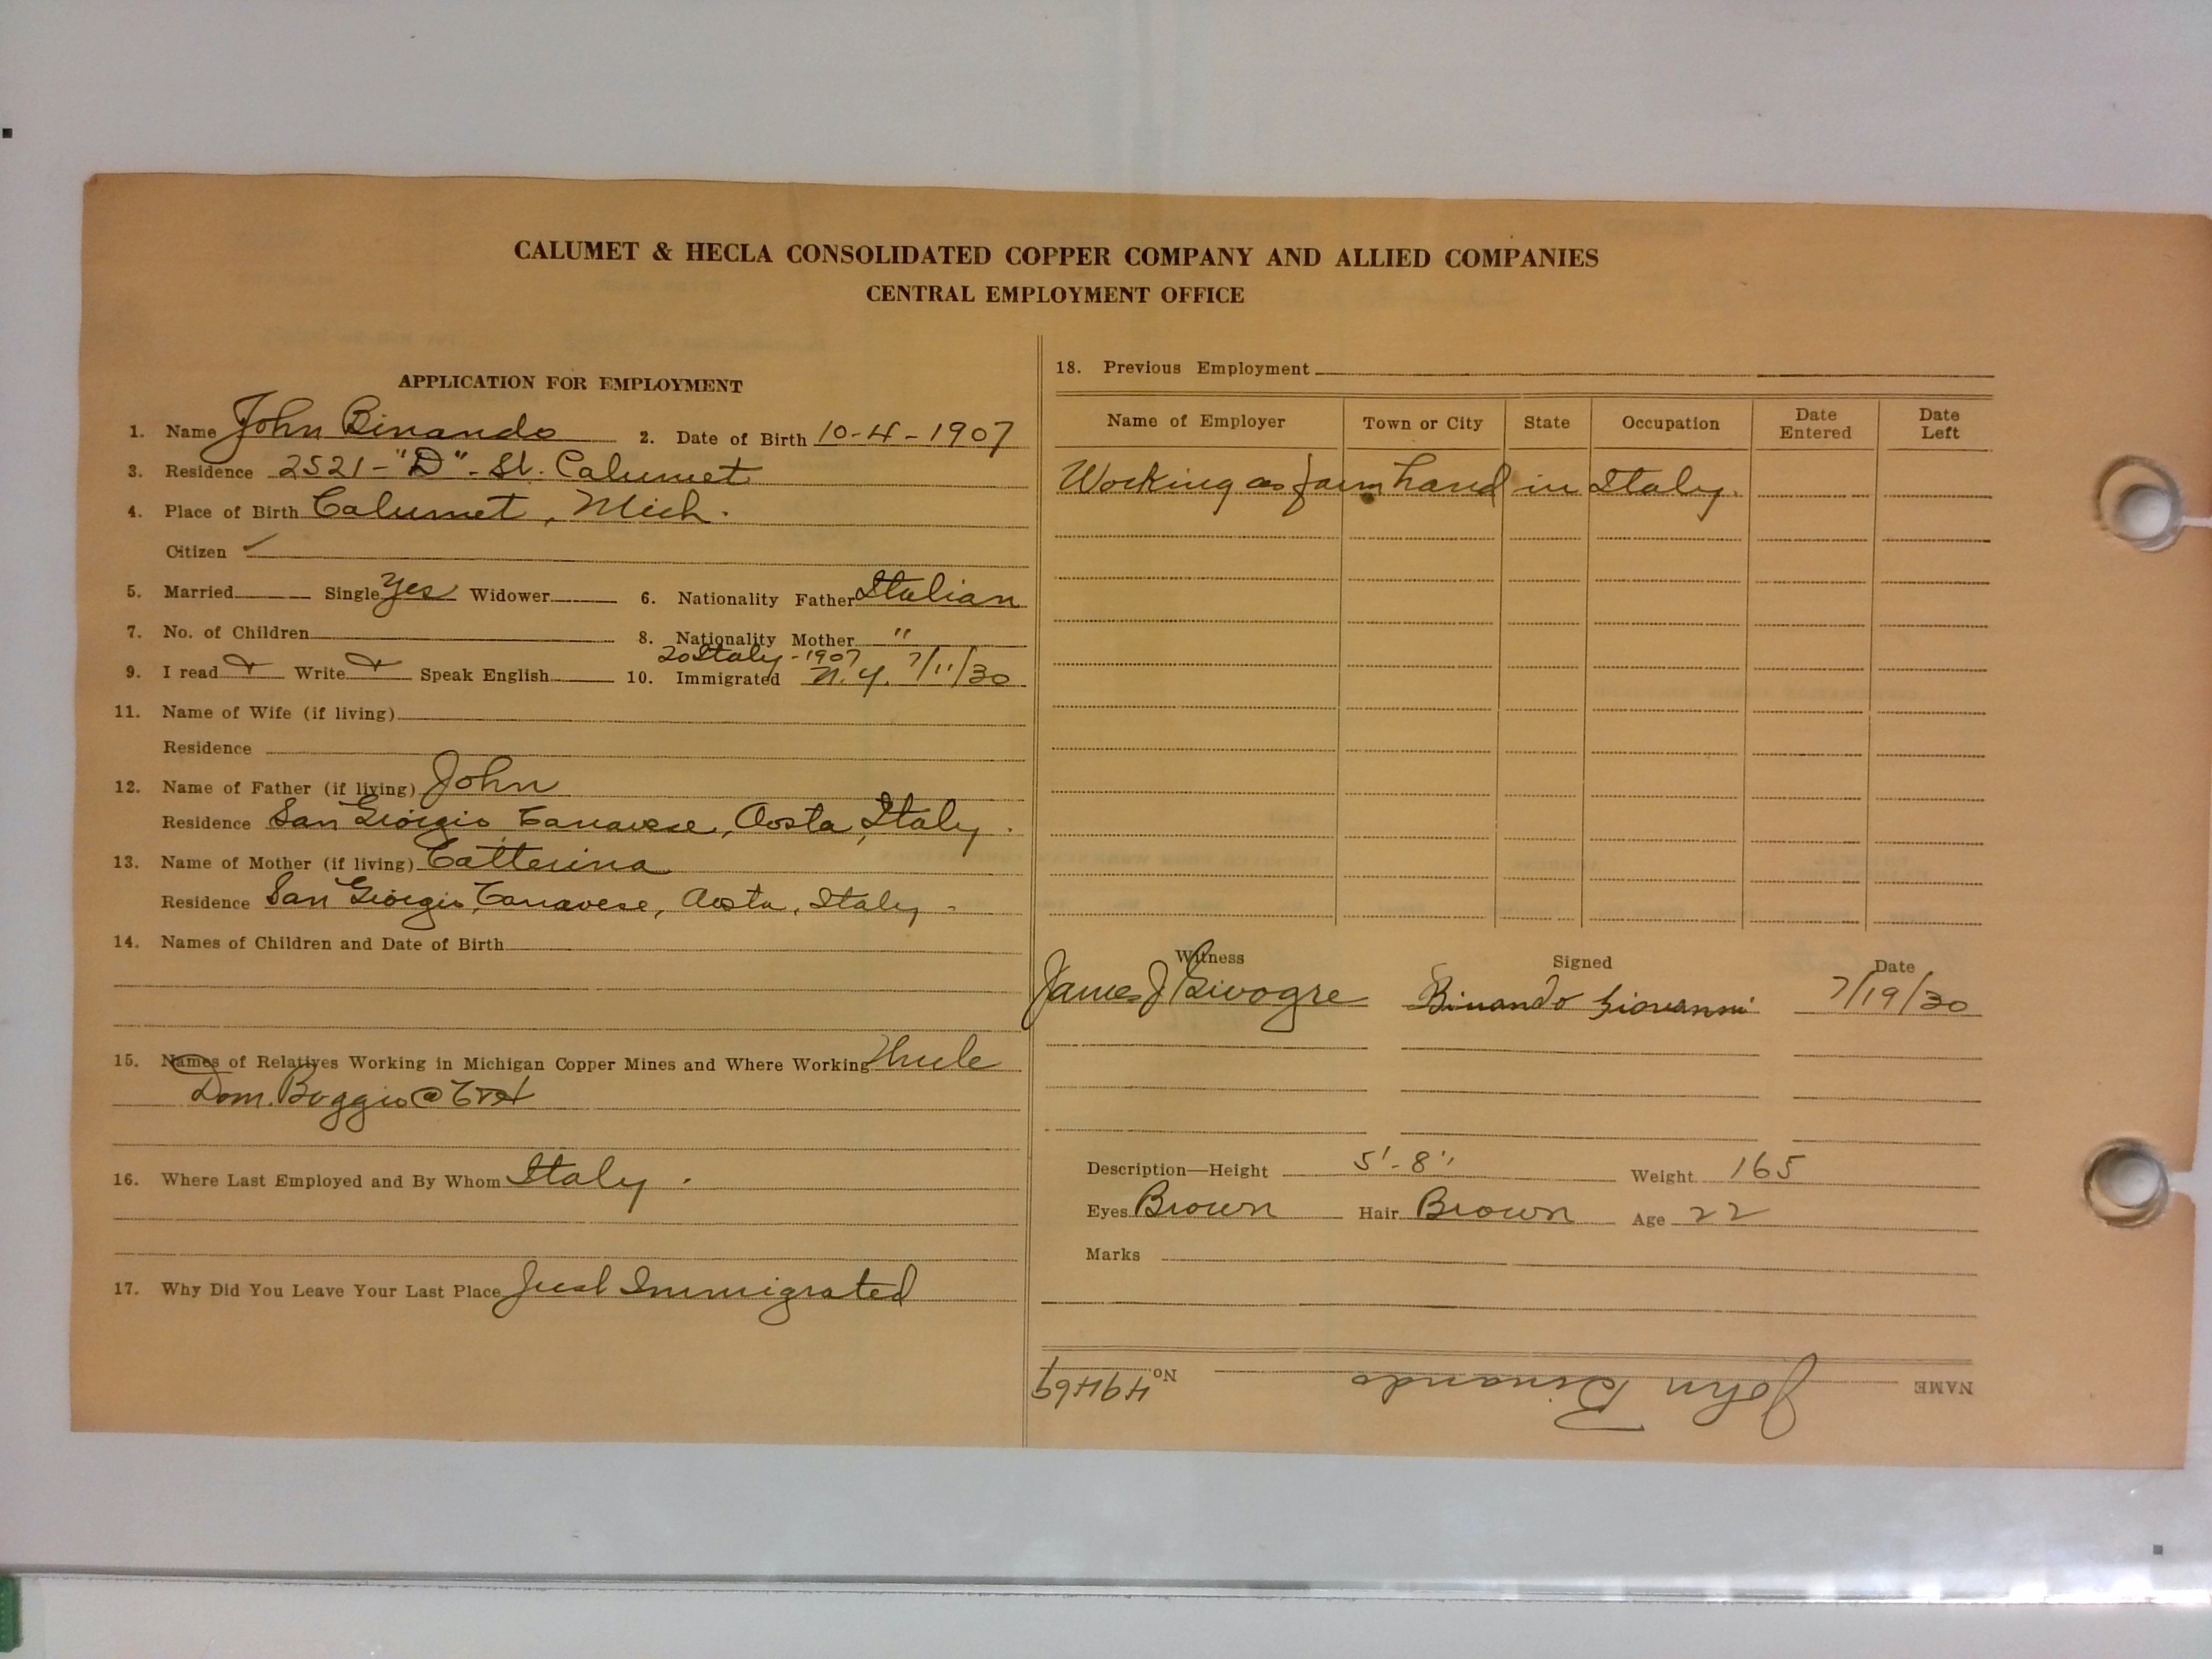 CALUMET & HECLA CONSOLIDATED COPPER COMPANY AND ALLIED COMPANIES
CENTRAL EMPLOYMENT OFFICE
APPLICATION FOR EMPLOYMENT
1. Name John Binando 2. Date of Birth 10-4-1907
3. Residence 2521-"D"-St. Calumet
4. Place of Birth Calumet, Mich.
Citizen ✓
5. Married Single Yes Widower 6. Nationality Father Italian
7. No. of Children 8. Nationality Mother "
To Italy - 1907
9. I read Write Speak English 10. Immigrated N.Y. 7/11/30
11. Name of Wife (if living)
Residence
12. Name of Father (if living) John
Residence San Giorgio Canavese, Aosta, Italy.
13. Name of Mother (if living) Catterina
Residence San Giorgio, Canavese, Aosta, Italy -
14. Names of Children and Date of Birth
15. Names of Relatives Working in Michigan Copper Mines and Where Working Uncle
Dom. Boggio @
16. Where Last Employed and By Whom Italy.
17. Why Did You Leave Your Last Place Just Immigrated
18. Previous Employment
Name of Employer Town or City State Occupation Date Entered Date Left
Working as farm hand in Italy.
Witness Signed Date
James J Binando Giovanni 7/19/30
Description—Height 5'-8" Weight 165
Eyes Brown Hair Brown Age 22
Marks
NAME John Binando No. 49469